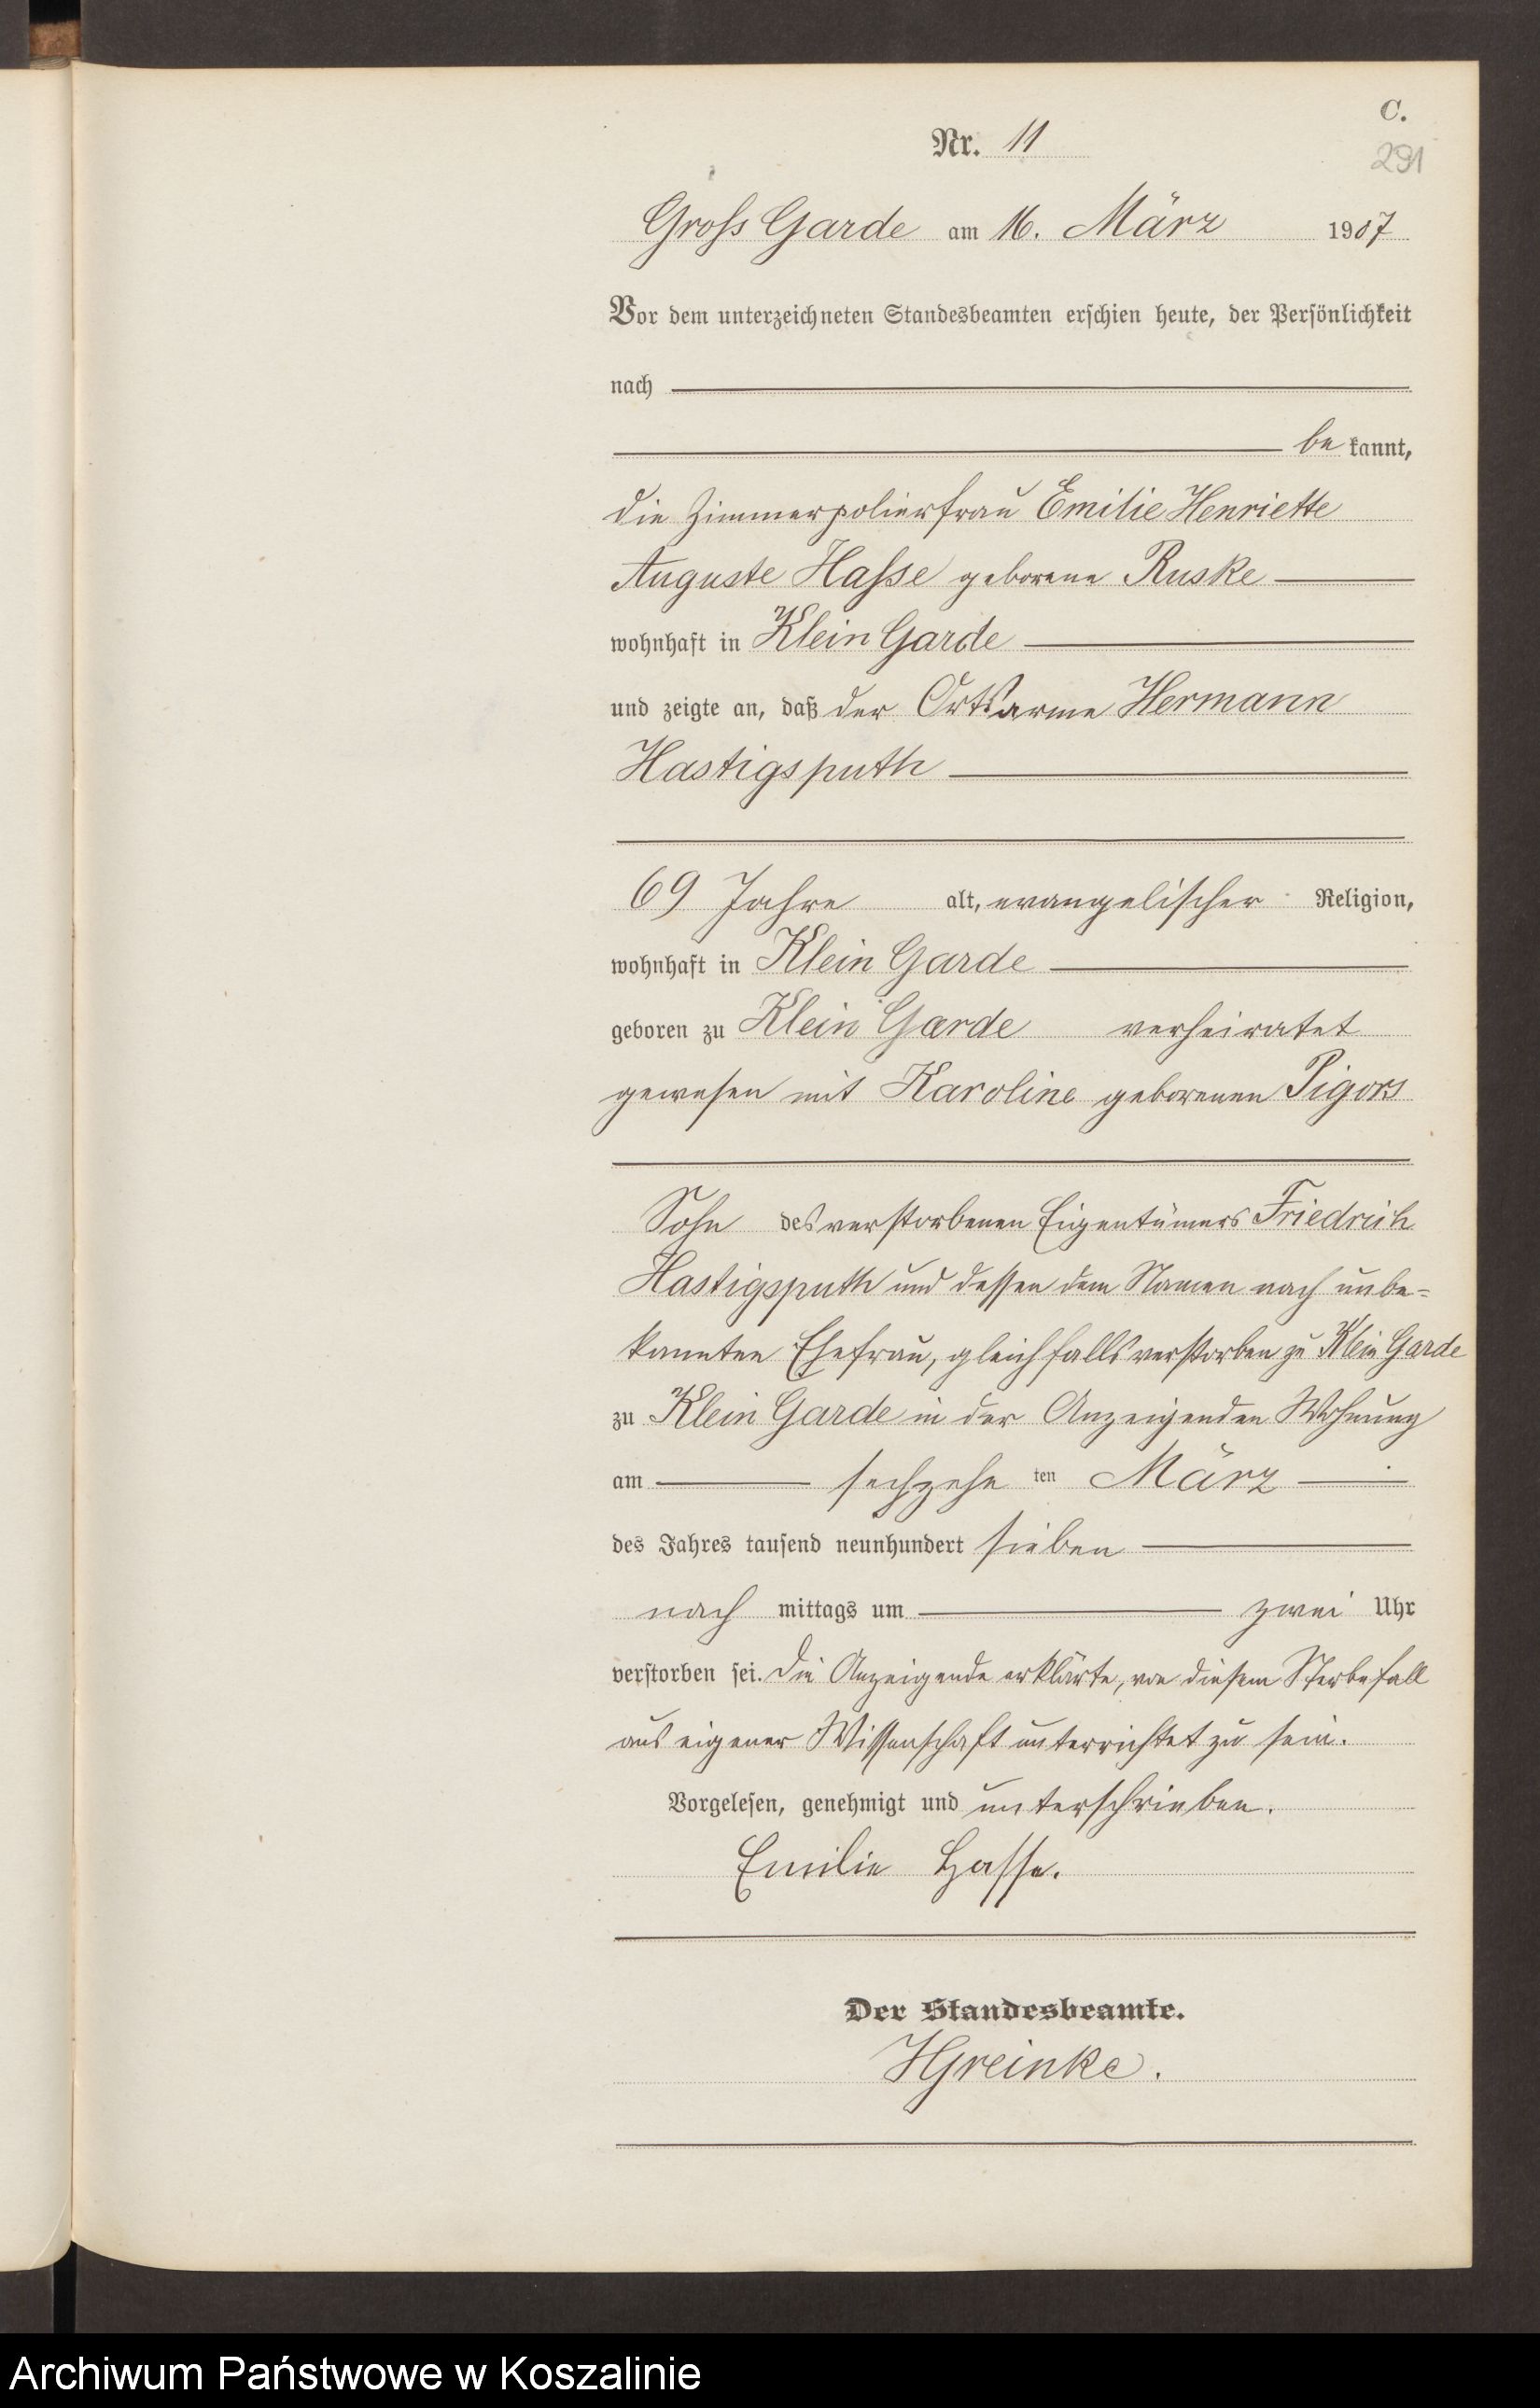 C.
Nr. 11
291
Gross Garde am 16. März 1907
Vor dem unterzeichneten Standesbeamten erschien heute, der Persönlichkeit
nach
be kannt,
die Zimmerpolierfrau Emilie Henriette
Auguste Hasse geborene Ruske
wohnhaft in Klein Garde
und zeigte an, daß der Ortsarme Hermann
Hastigsputh
69 Jahre alt, evangelischer Religion,
wohnhaft in Klein Garde
geboren zu Klein Garde verheiratet
gewesen mit Karoline geborenen Pigors
Sohn des verstorbenen Eigentümers Friedrich
Hastigsputh und dessen dem Namen nach unbe-
kannten Ehefrau, gleichfalls verstorben zu Klein Garde
zu Klein Garde in der Anzeigenden Wohnung
am sechzehn ten März
des Jahres tausend neunhundert sieben
nach mittags um zwei Uhr
verstorben sei. Die Anzeigende erklärte, von diesem Sterbefall
aus eigener Wissenschaft unterrichtet zu sein.
Vorgelesen, genehmigt und unterschrieben.
Emilie Hasse.
Der Standesbeamte.
HGreinke.
Archiwum Państwowe w Koszalinie